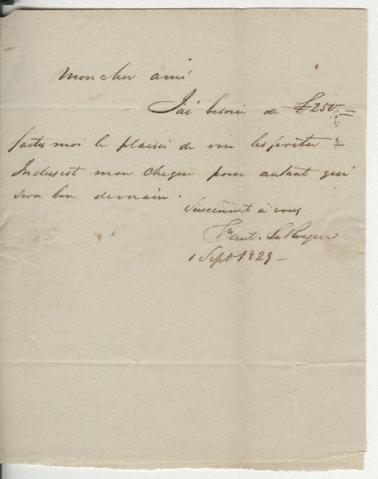 Mon cher ami
J'ai besoin de £250
faites moi le plaisir de me les prêter
Inclus est mon cheque pour autant qui
sera bon demain.
Sincerement à vous
Ant. LaRocque
1 Sept 1829